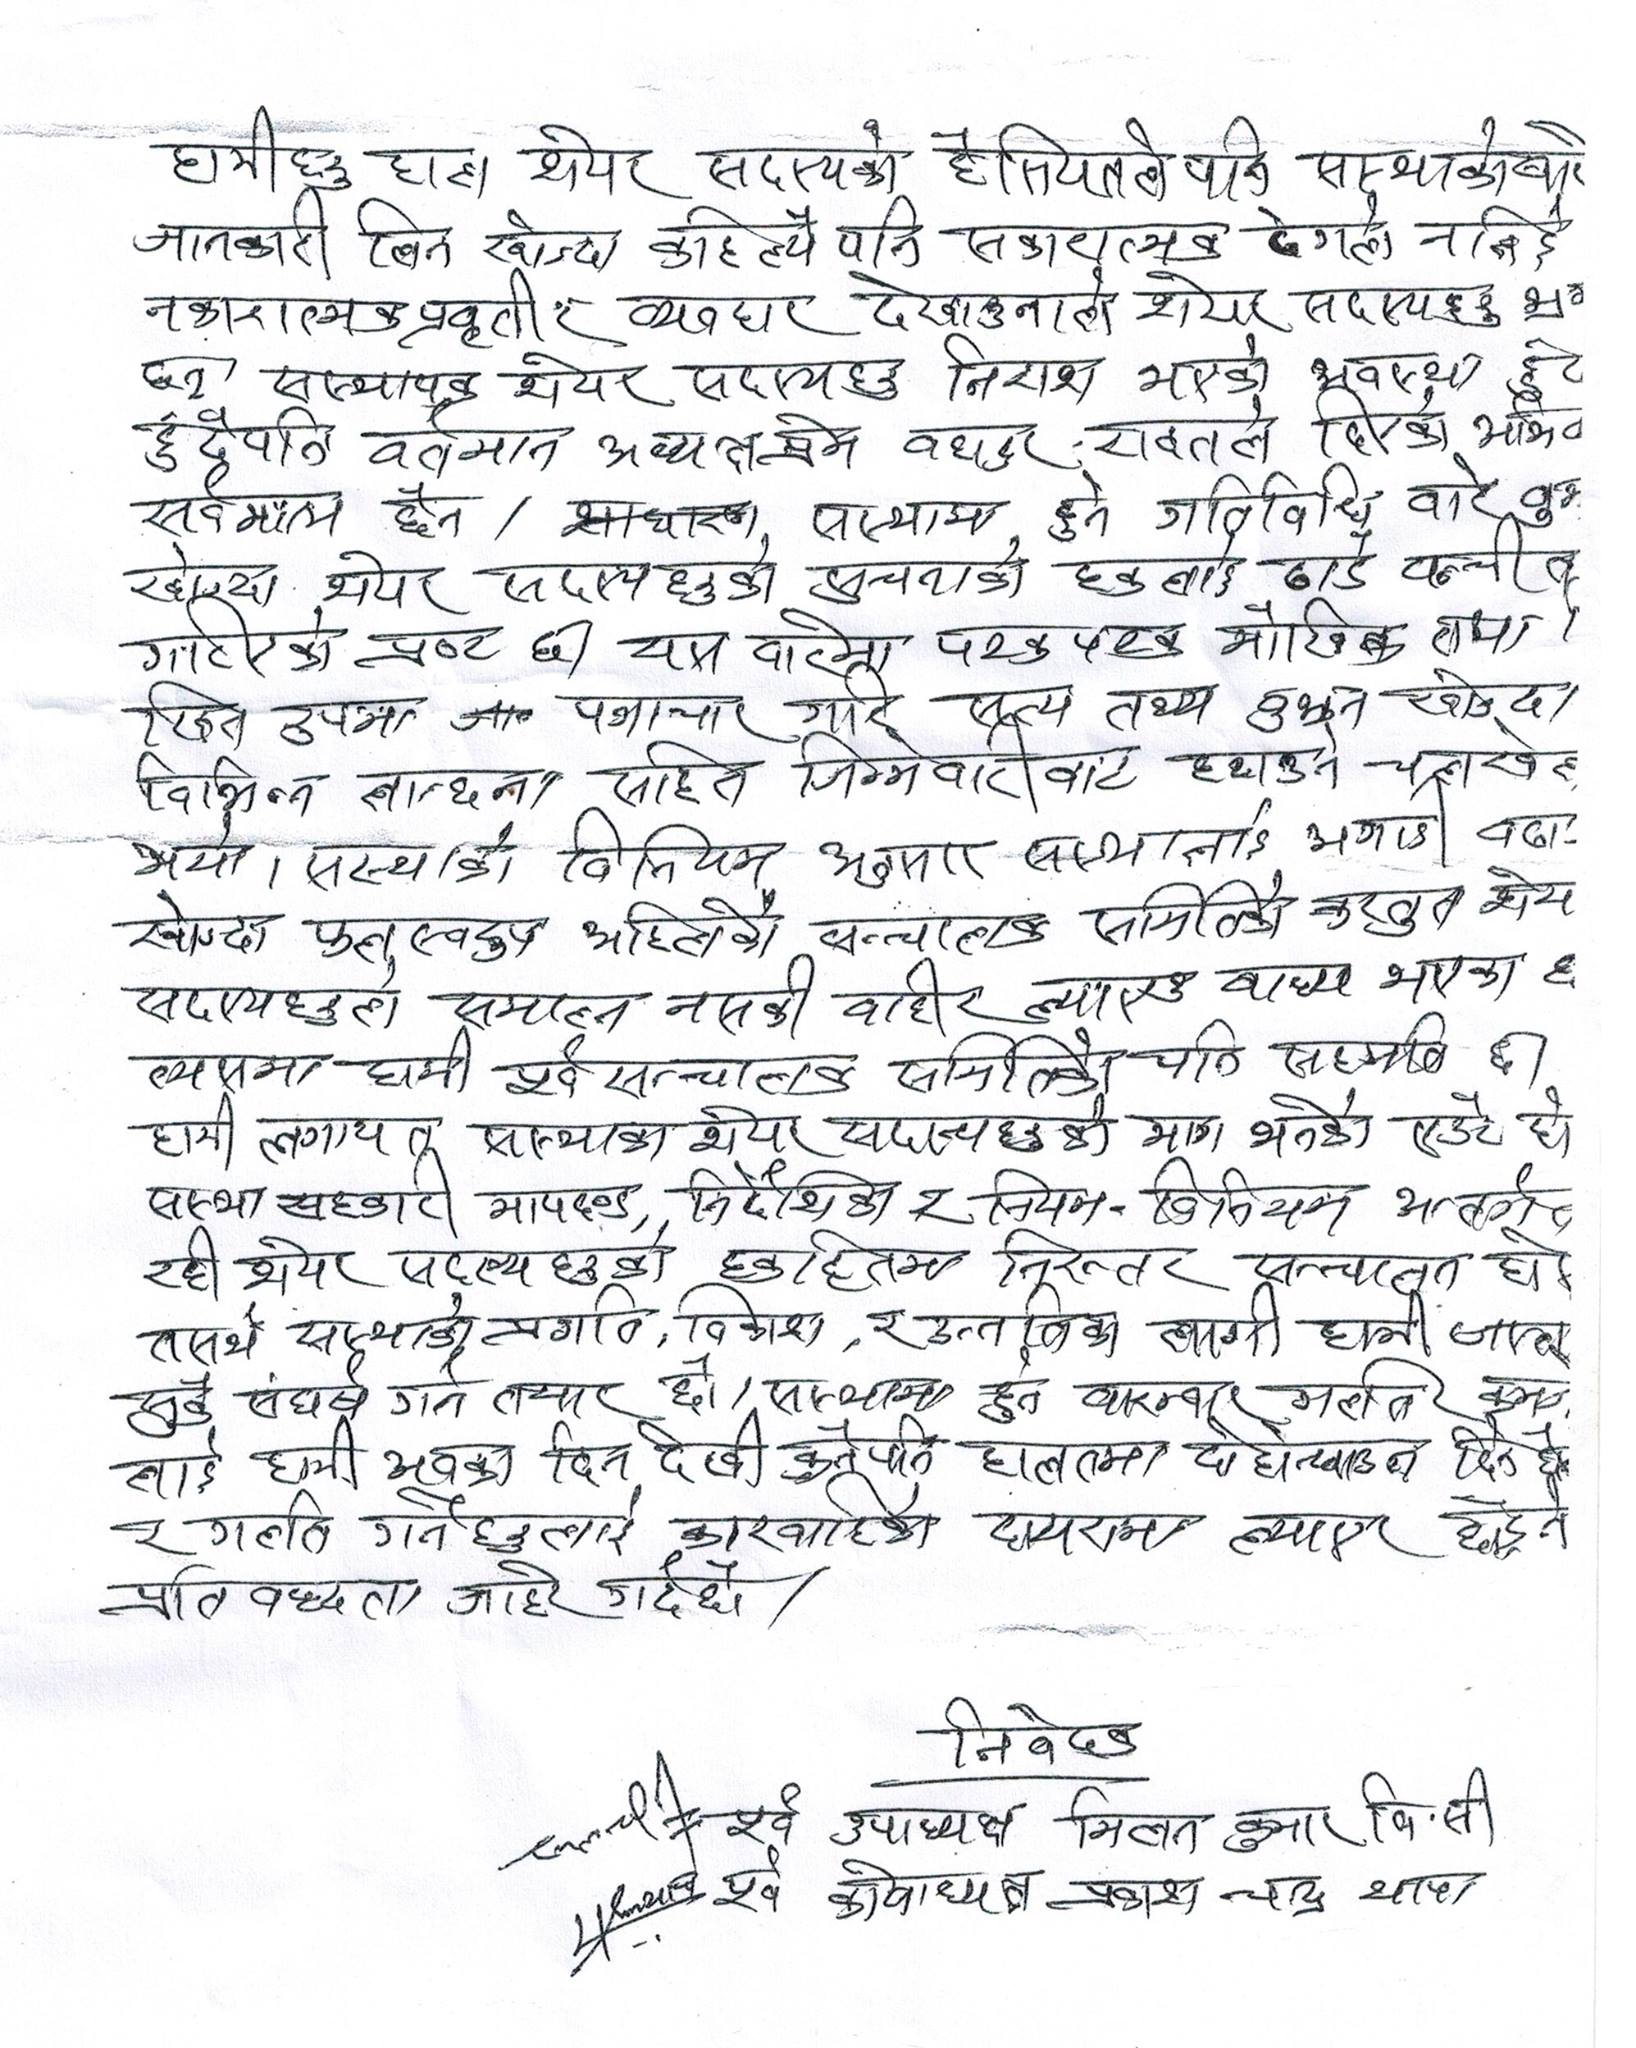 हामीहरु हाल शेयर सदस्यको हैसियतले पनि सस्थाकोबारे
जानकारी लिन खोज्दा कहिल्यै पनि सकारात्मक ढंगले नलिई
नकारात्मक प्रवृती र व्यवहार देखाउनाले शेयर सदस्यहरु
छन् सस्थापक शेयर सदस्यहरु निराश भएको अवस्था
हुंदैपनि वर्तमान अध्यक्ष प्रेम वहादुर रावतले दिएको
सर्वमान्य छैन । साधारण सस्थामा हुने गतिविधि बारे
खोज्दा शेयर सदस्यहरुको सुचनाको हकलाई ठाडै वन्चीत
गरिएको प्रष्ट छ। यस वारेमा पटक पटक मौखिक तथा
खित रुपमा पत्राचार गरि सत्य तथ्य वुझ्न खोज्दा
विभिन्न लान्छना सहित जिम्मेवारीवाट हटाउने चलखेल
भयो। सस्थाको विनियम अनुसार सस्थालाई अगाडी वढा
खोज्दा फलस्वरुप अहिलेको सन्चालक समितिको करतुत शेय
सदस्यहरुले समाल्न नसकी वाहीर ल्याउन वाध्य भएका छ
त्यसमा हामी पूर्व सन्चालक समितिको पनि सहमति छ।
हामी लगायत सस्थाका शेयर सदस्यहरुको माग भनेको एउटै हो
सस्था सहकारी मापदण्ड, निर्देशिका र नियम-विनियम अन्तर्गत
रही शेयर सदस्यहरुको हकहितमा निरन्तर सन्चालन होस्
तसर्थ सस्थाको प्रगति, विकाश, र उन्नतिका लागी हामी
जुडै संघर्ष गर्न तयार छौ। सस्थामा हुने वारम्वार गलति
लाई हामी अवका दिन देखी कुनैपनि हालतमा दोहोर्‍याउन दिने छै
र गलति गर्नेहरुलाई कारवाहिको दायरामा ल्याएर छोड्ने
प्रतिवध्दता जाहेर गर्दछौ।
निवेदक
पूर्व उपाध्यक्ष मिलन कुमार वि.सी
पूर्व कोषाध्यक्ष प्रकाश चन्द्र थापा